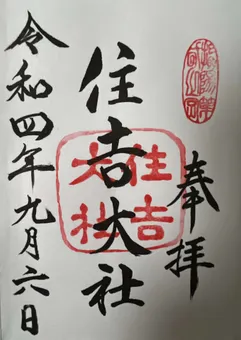 奉拝
住吉大社
令和四年九月六日
住吉
大社